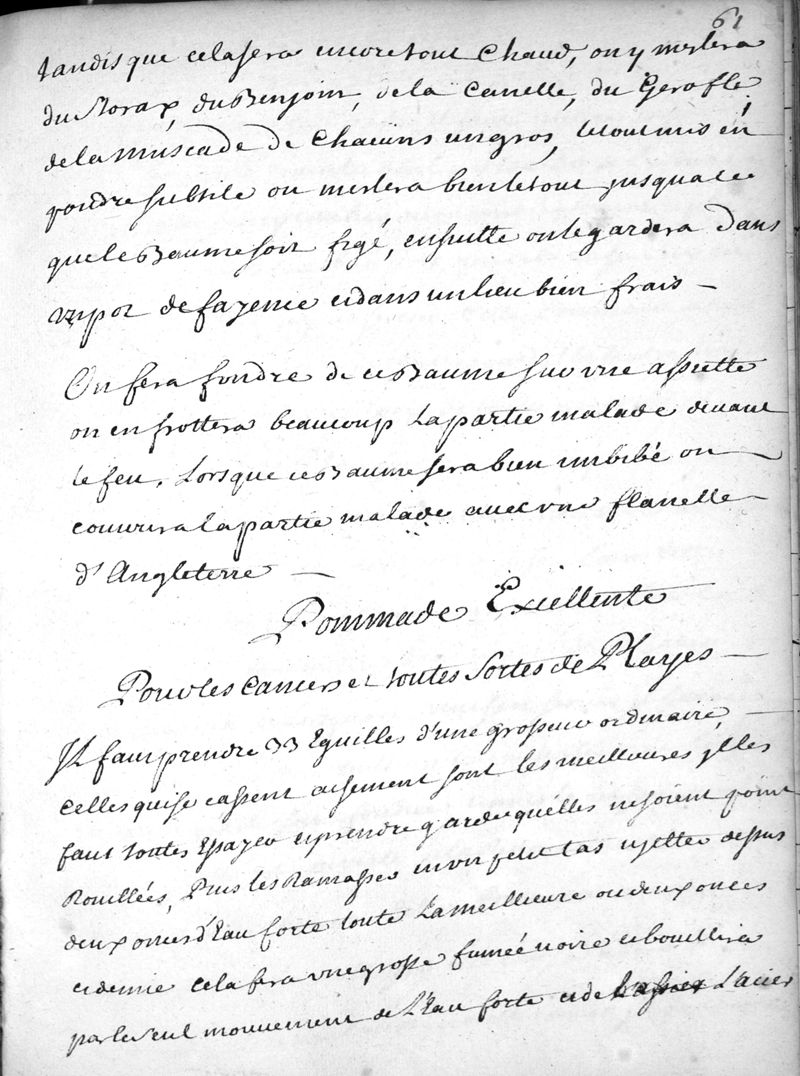 61
tandis que cela sera encore tout Chaud, on y meslera
du Storax, du Benjoin, de la Canelle, du Gerofle
de la Muscade de Chacuns un gros, le tout mis én
poudre subtile on meslera bien le tout jusqua ce
que le Baume soit figé, ensuitte on le gardera dans
un pot de fayence et dans un lieu bien frais —
On fera fondre de ce Baume sur une assiette
on en frottera beaucoup la partie malade devant
le feu, Lorsque ce Baume sera bien imbibé on —
couvrira la partie malade avec une flanelle —
d'Angleterre —
Pommade Excellente
Pour les Cancers et toutes Sortes de Playes —
Il faut prendre 33 Eguilles d'une grosseur ordinaire, —
celles qui se cassent aisement sont les meilleures, il les
faut toutes Essayer et prendre garde qu'elles ne soient point
Rouillées, Puis les Ramasser en un petit tas et jetter dessus
deux onces d'Eau forte toute la meilleure ou deux onces
et demie cela fera une grosse fumée noire et bouillira
par le seul mouvement de L'Eau forte et de L'acier